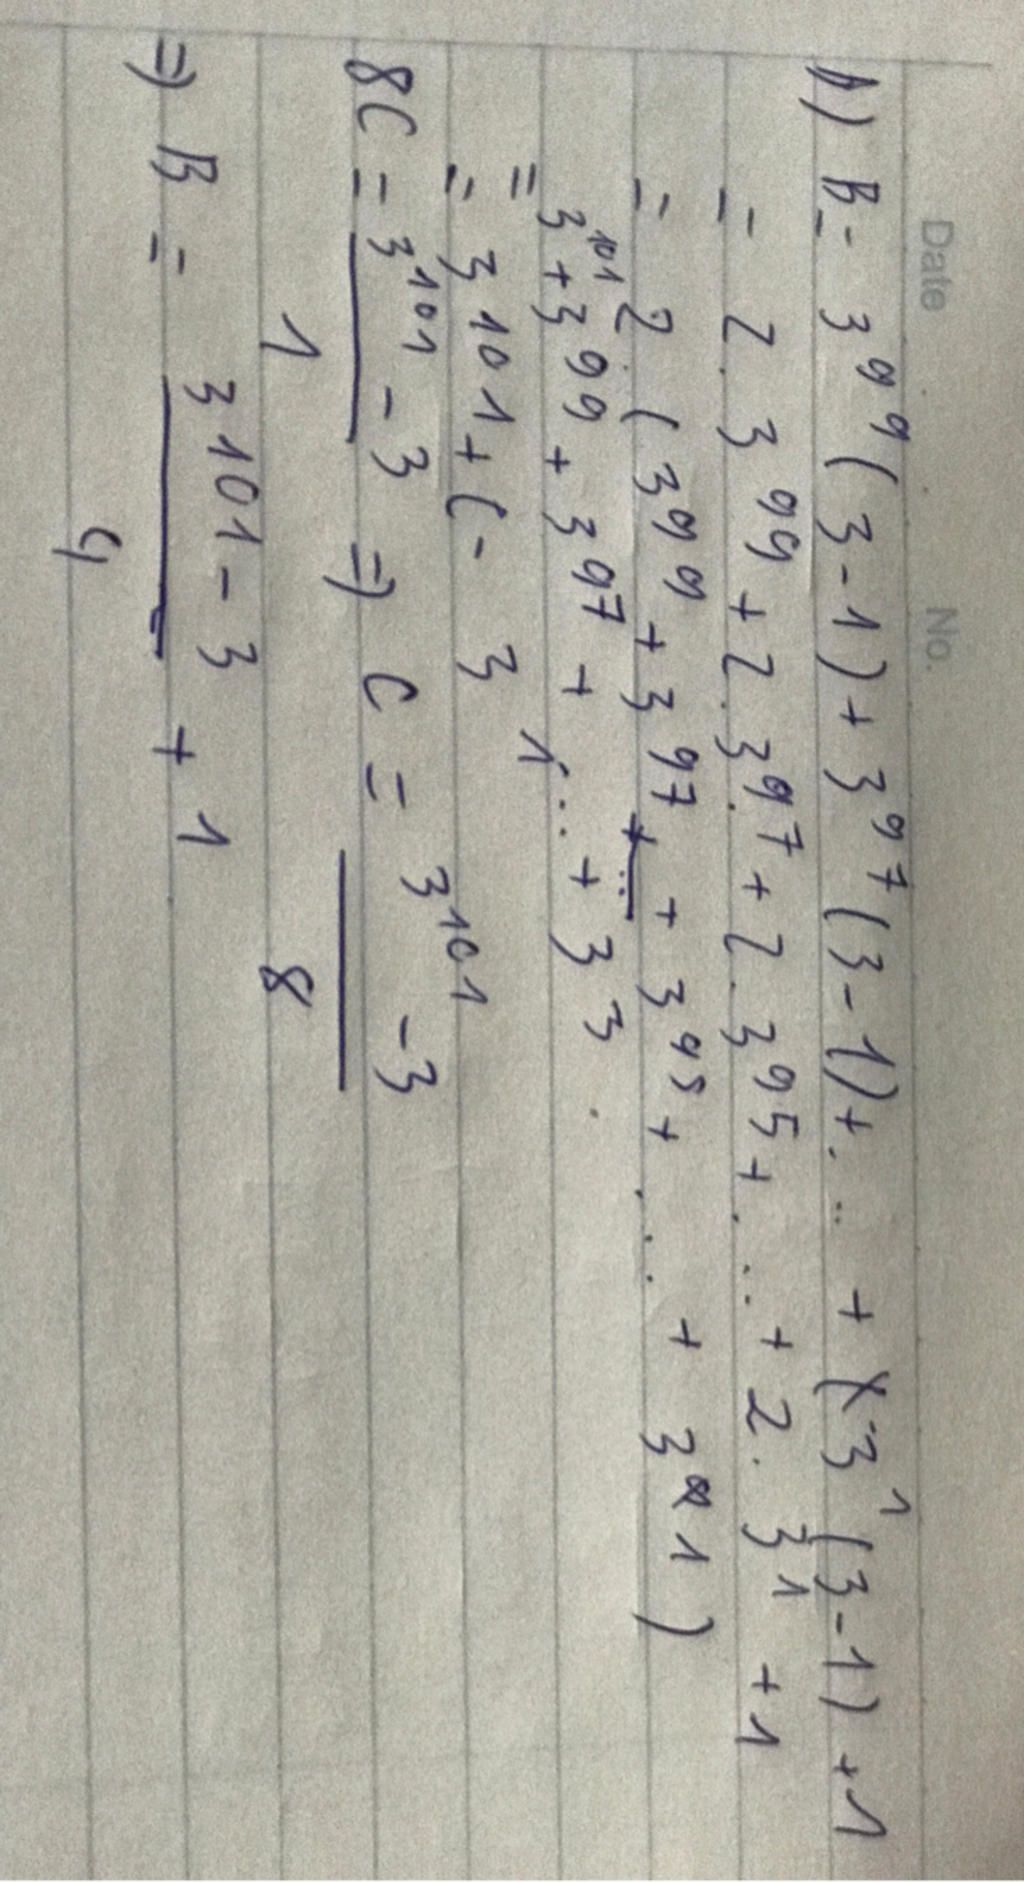 Date No.
A) B = 3^99 (3-1) + 3^97 (3-1) + ... + 3^1 (3-1) + 1
= 2.3^99 + 2.3^97 + 2.3^95 + ... + 2.3^1 + 1
= 2.(3^99 + 3^97 + 3^95 + ... + 3^1)
= 3^101 + 3^99 + 3^97 + ... + 3^3.
= 3^101 + (-3
8C = 3^101 - 3 => C = 3^101 - 3
1 8
=> B = 3^101 - 3 + 1
4